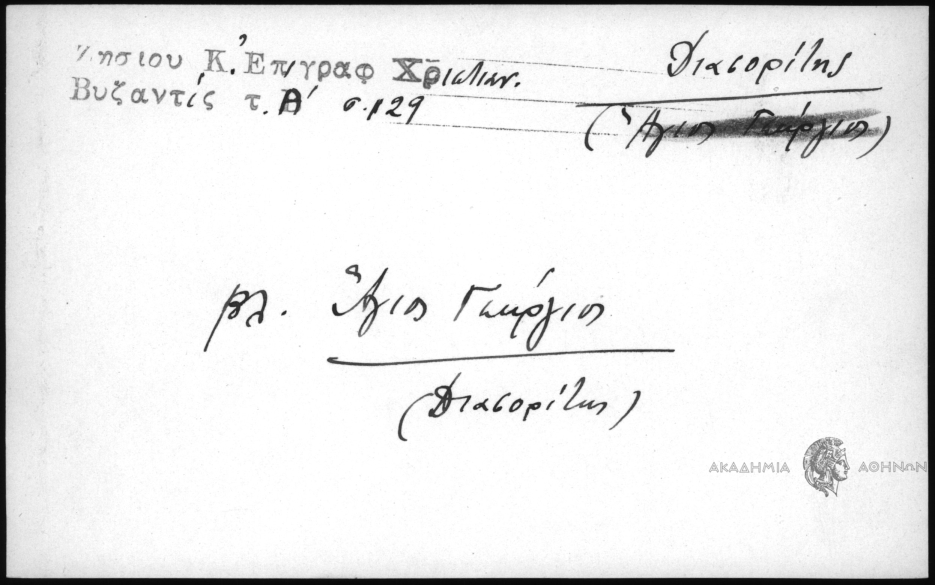 Ζησίου Κ. Ἐπιγραφ Χριστιαν.
Βυζαντίς τ. Α' σ. 129
Διασορίτης
(Ἅγιος Γεώργιος)
βλ. Ἅγιος Γεώργιος
(Διασορίτης)
ΑΚΑΔΗΜΙΑ ΑΘΗΝΩΝ